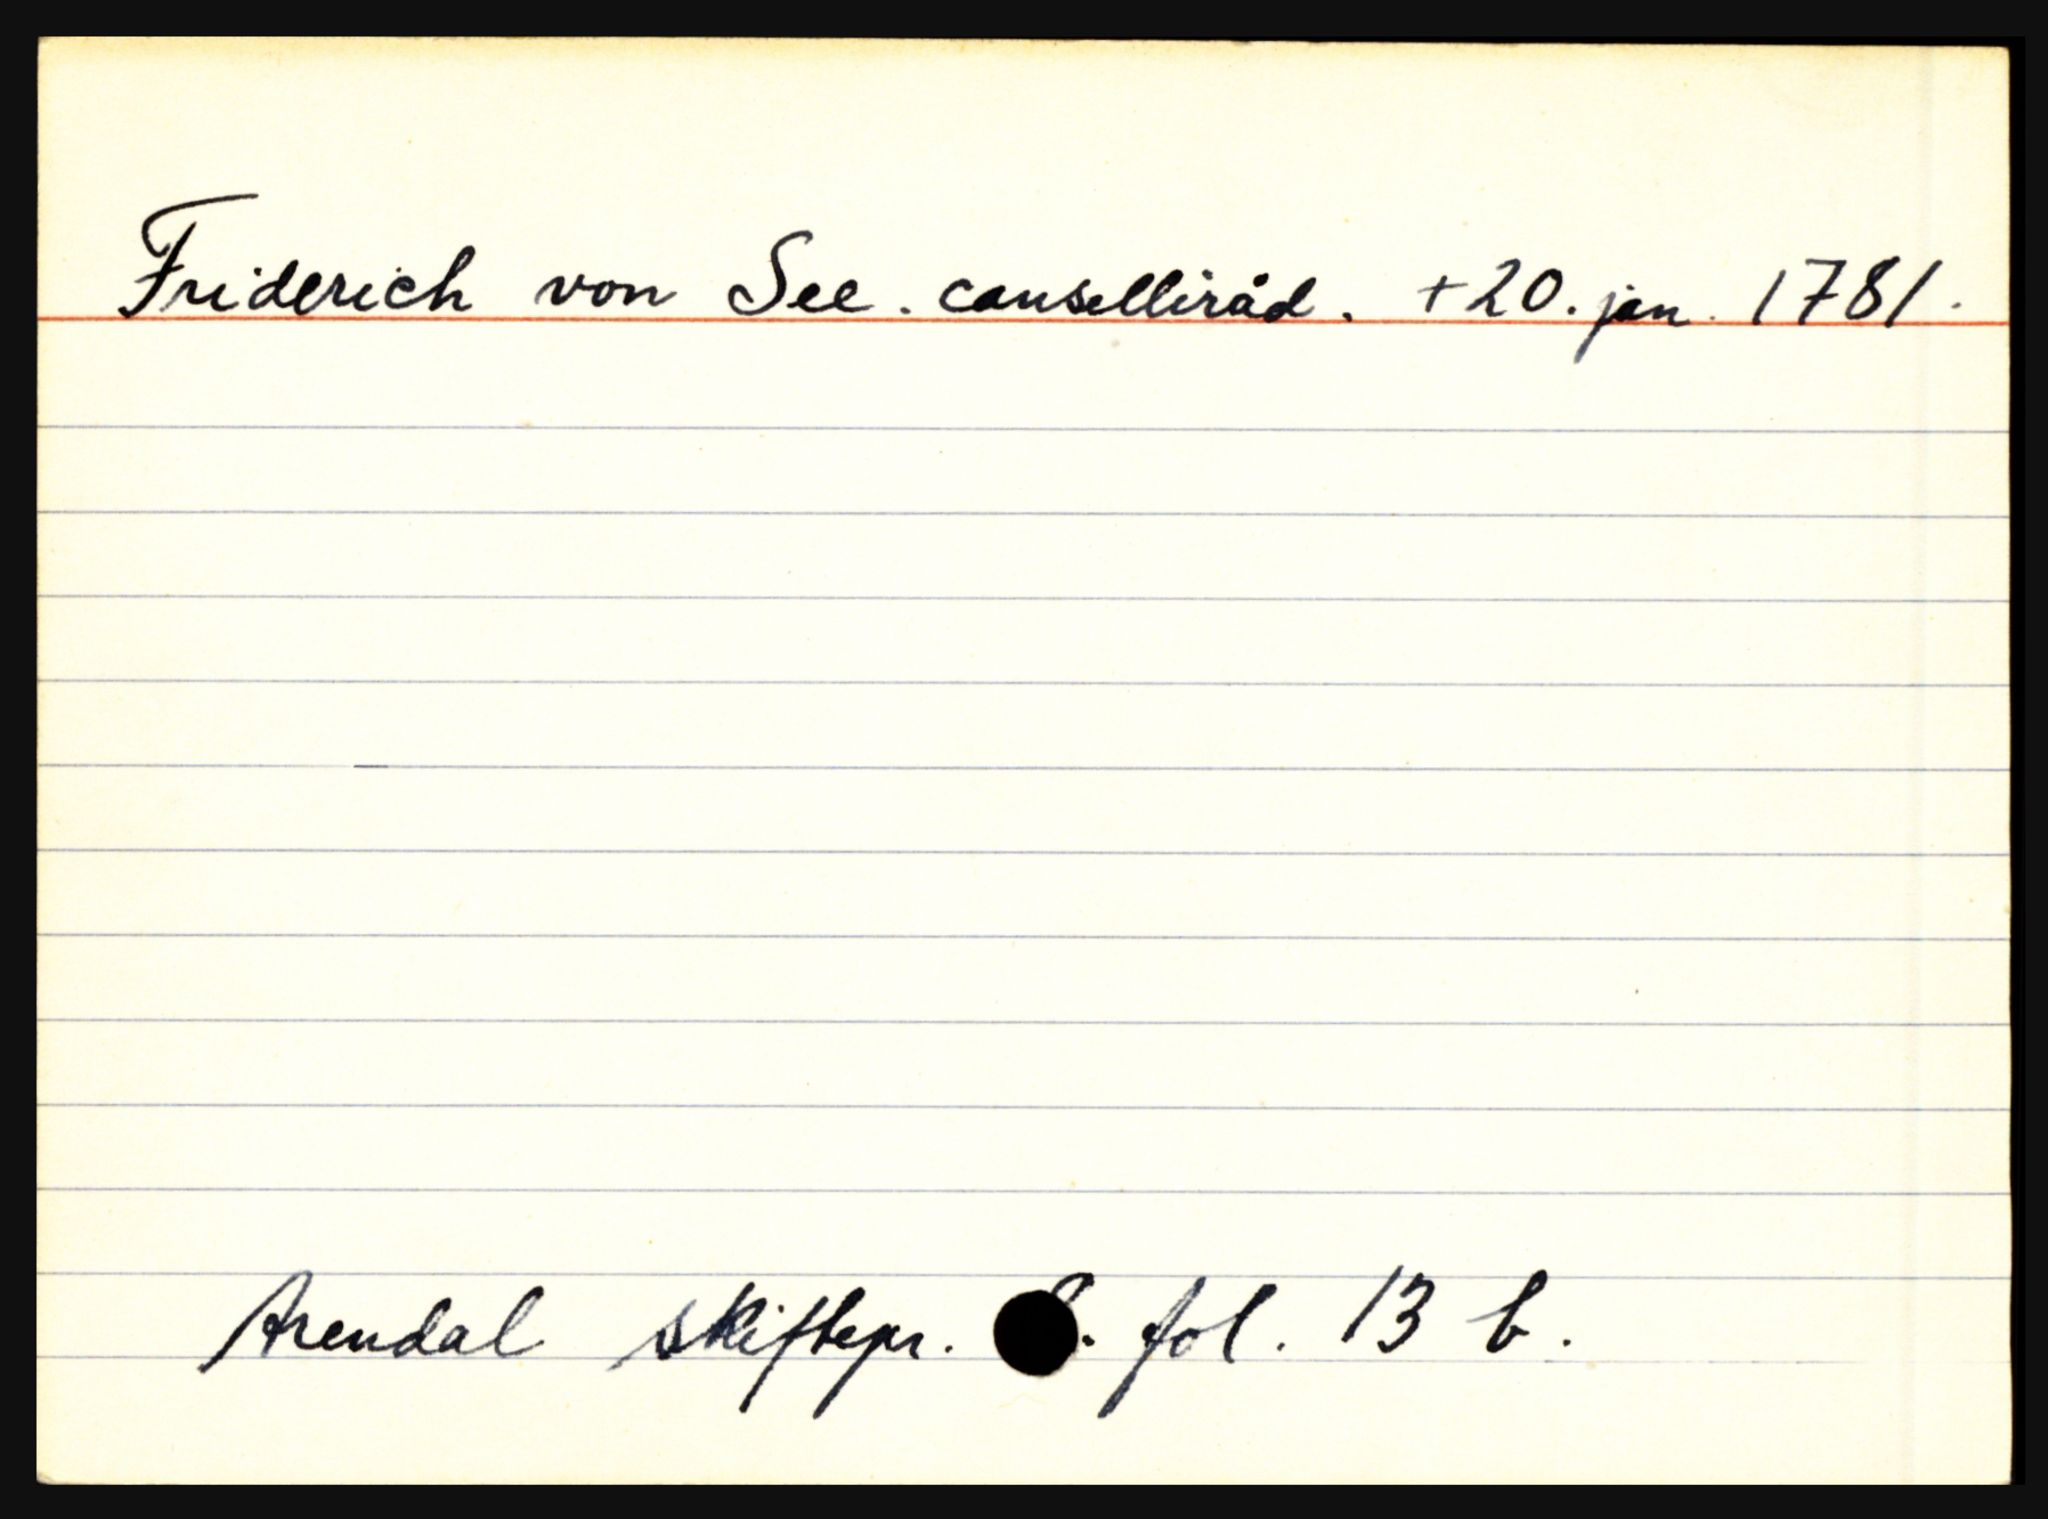 Friderich von See. canselliråd. +20. jan. 1781.
Arendal skiftepr. fol. 13 b.